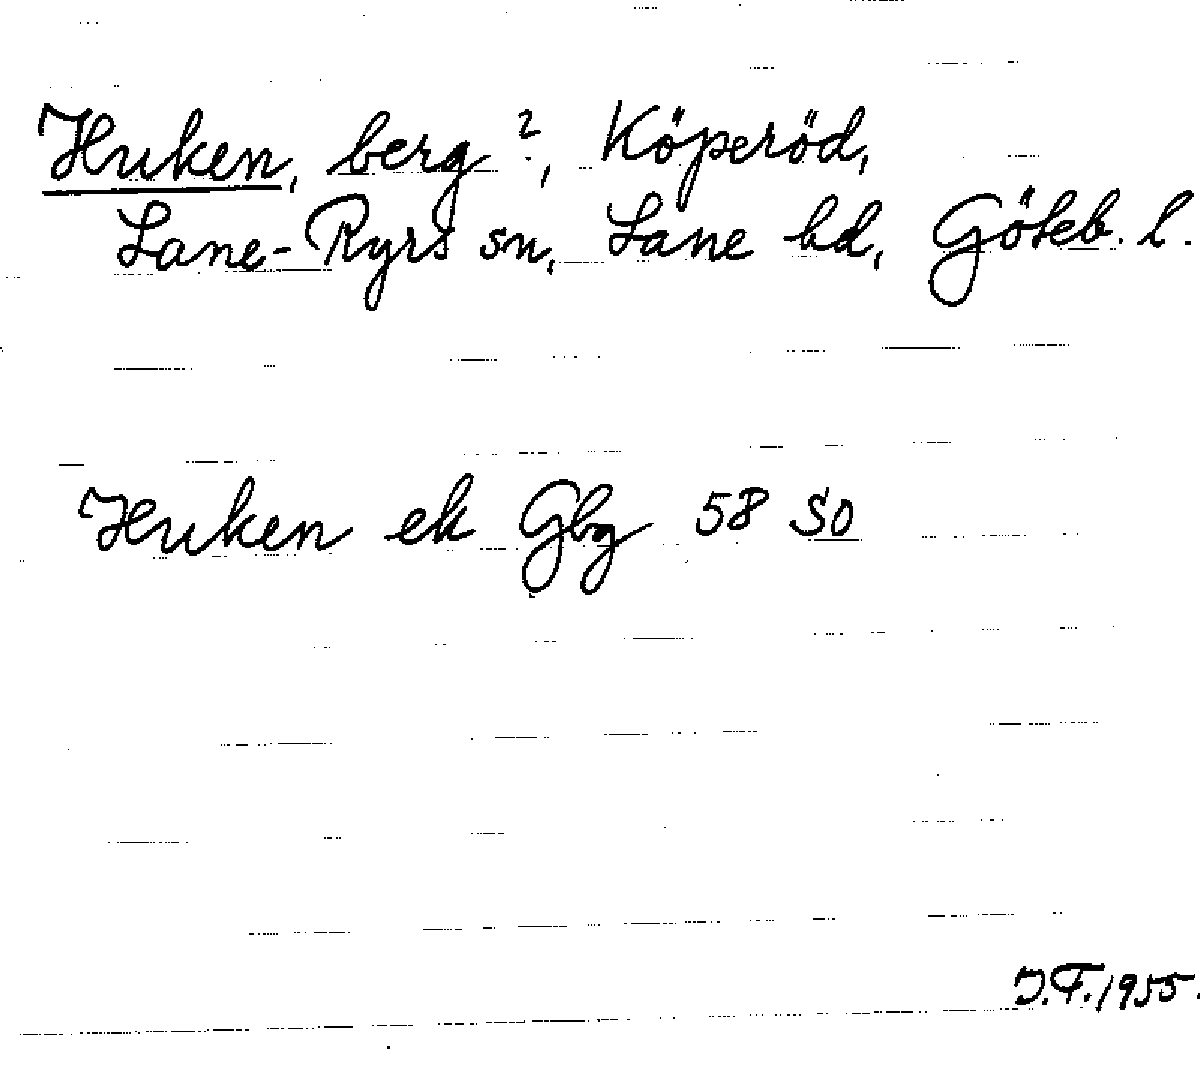 Huken, berg?, Köperöd,
Lane-Ryrs sn, Lane hd, Göteb. l.
Huken ek Gbg 58 SO
J.F. 1955.